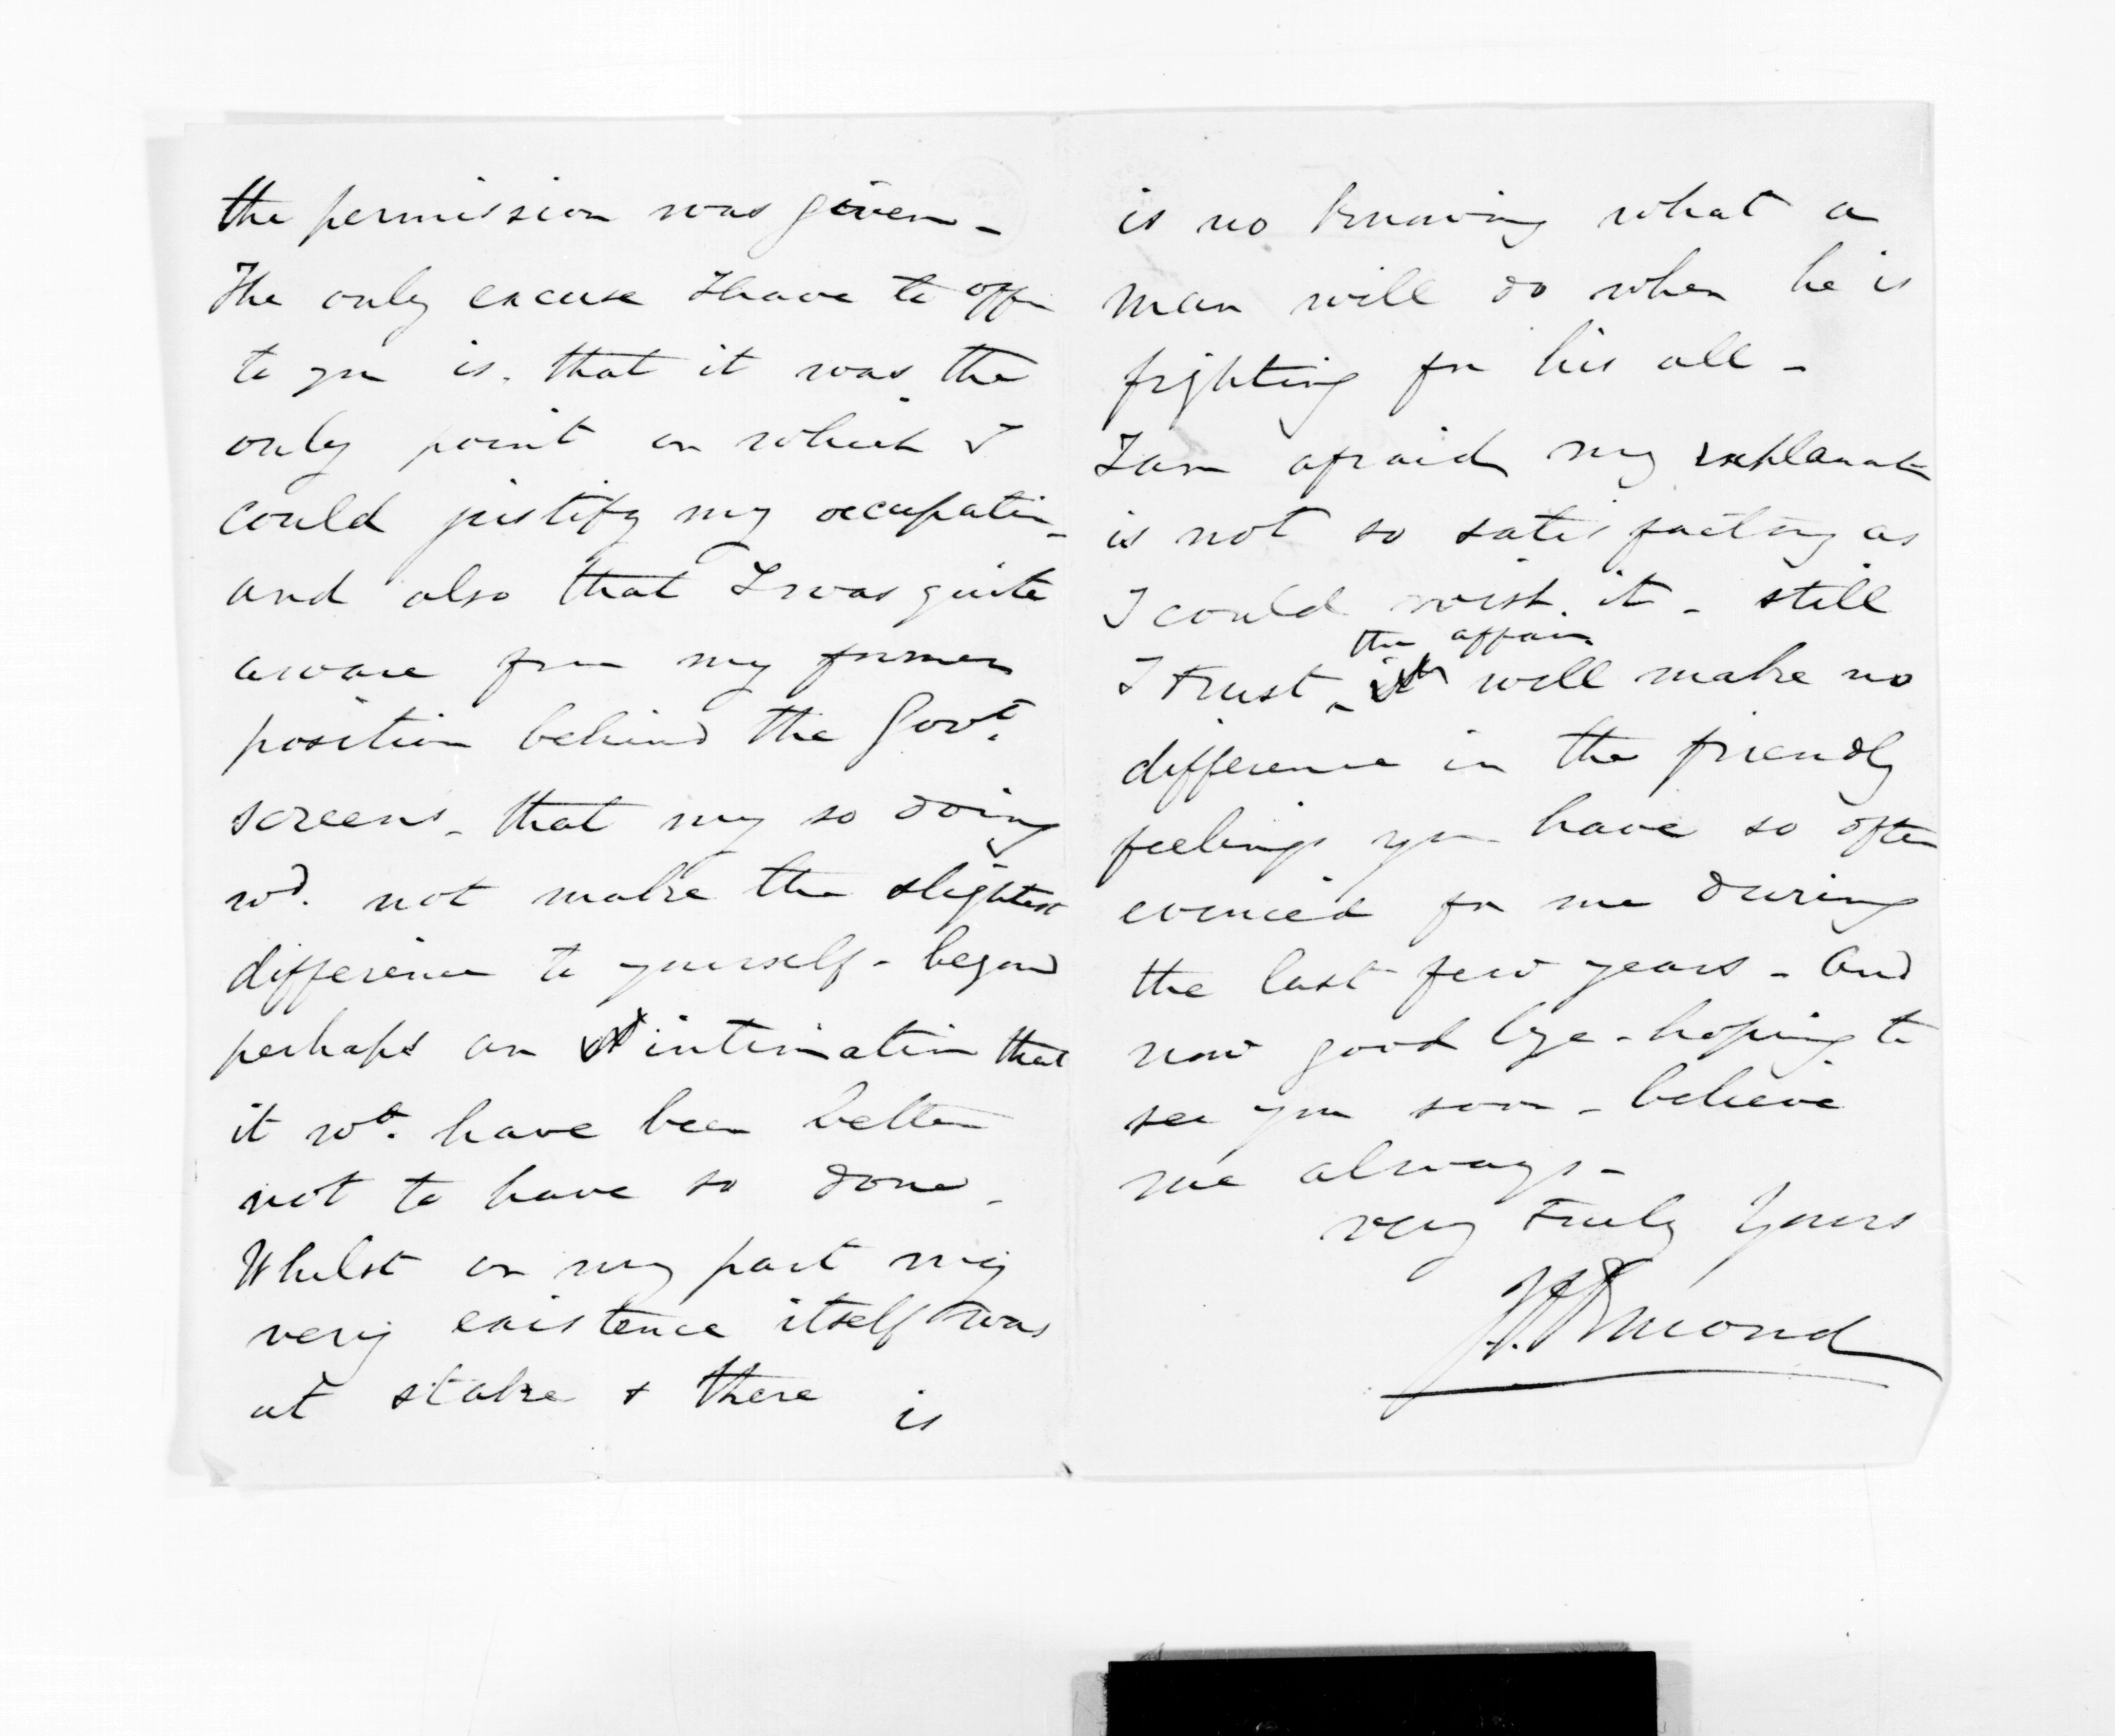 the permission was given -
The only excuse I have to offer
to you is. that it was the
only point on which I
could justify my occupation -
and also that I was quite
aware from my former
position behind the Govt.
screens - that my so doing
wd. not make the slightest
difference to yourself - beyond
perhaps an intimation that
it wd. have been better
not to have so done -
Whilst on my part my
very existence itself was
at stake & there is
is no knowing what a
man will do when he is
fighting for his all -
I am afraid my explanat
is not so satisfactory as
I could wish it - still
the affair
I trust will make no
difference in the friendly
feelings you have so often
evinced for me during
the last few years - And
now good bye - hoping to
see you soon - believe
me always -
very truly Yours
Ormond